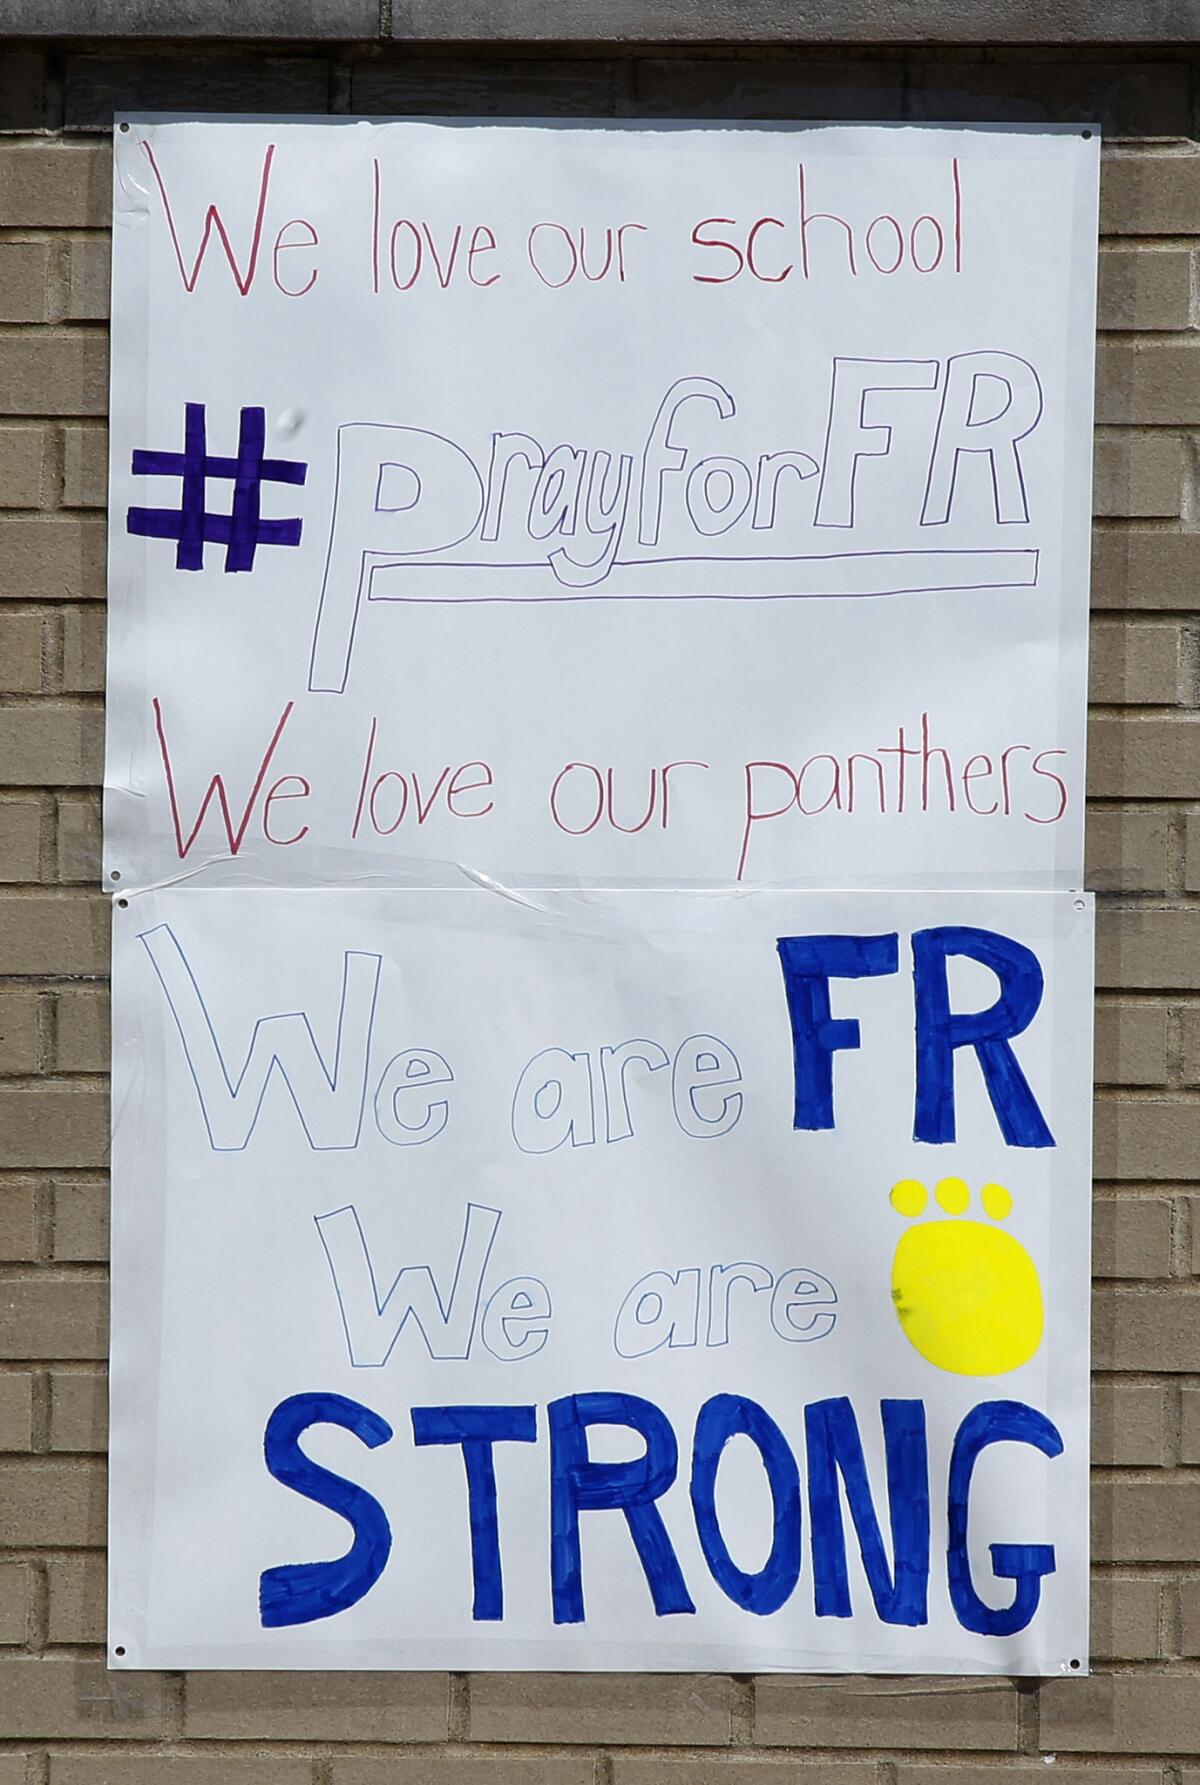 We love our school
#prayforFR
We love our panthers
We are FR
We are
STRONG